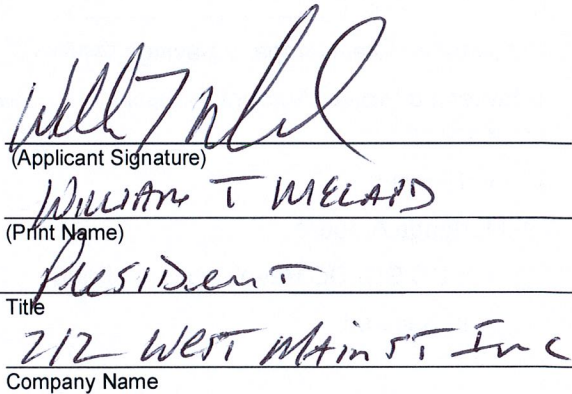 (Applicant Signature)
WILLIAM T
(Print Name)
PRESIDENT
Title
212 WEST MAIN ST INC
Company Name